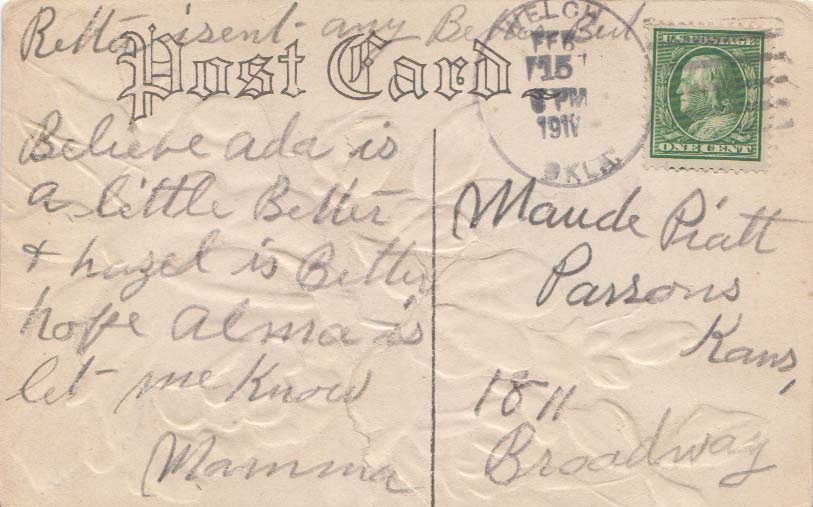 Retta isent any Better But
Post Card
WELCH
FEB
15
PM
191
OKLA.
U.S. POSTAGE
ONE CENT
Believe ada is
a little Better
& hazel is Better
hope alma is
let me Know
Mamma
Maude Piatt
Parsons
Kans,
1811
Broadway